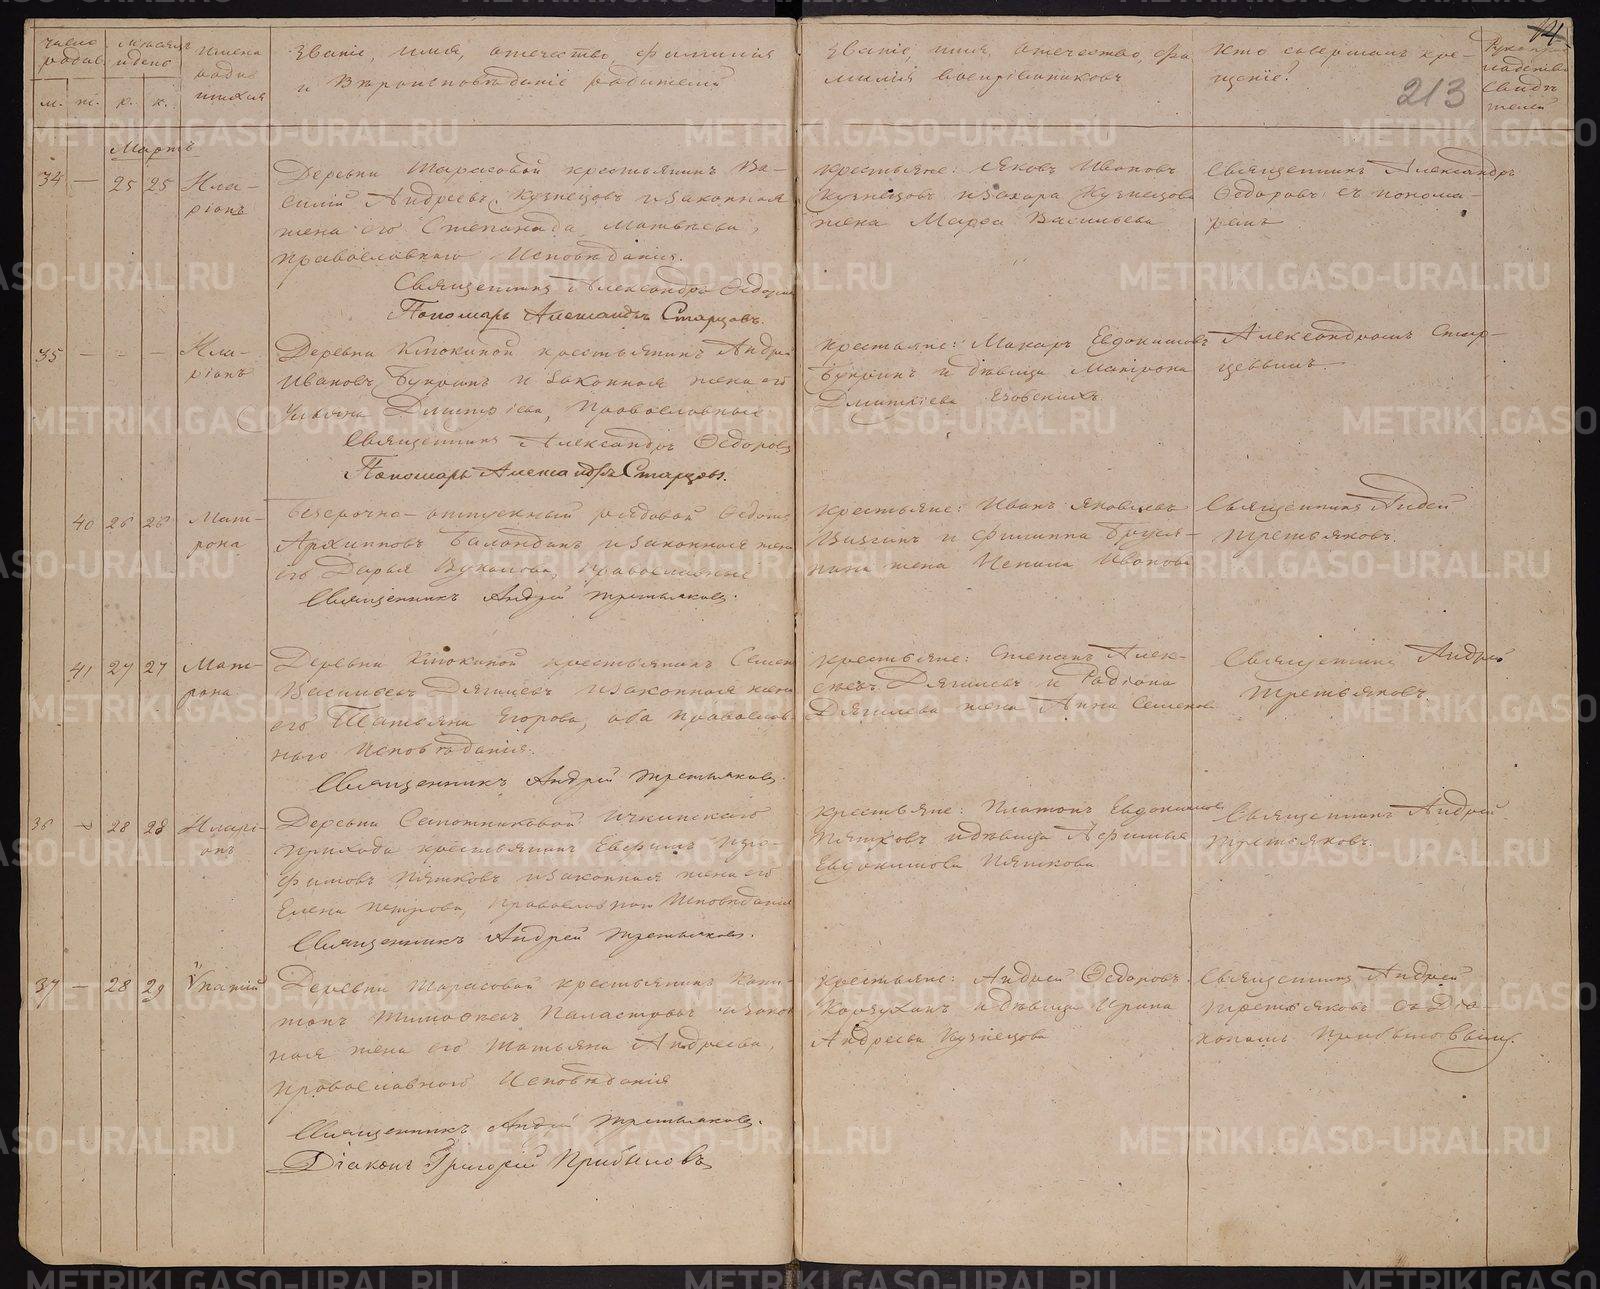 число родив.
мѣсяцъ и день
имена родившихся
Званіе, имя, отечество, фамилія
и Вѣроисповѣданіе родителей
Званіе, имя, отечество, фа-
милія воспріемниковъ
Кто совершалъ кре-
щеніе?
213
м. ж. р. к.
Мартъ
34 — 25 25 Ила-
ріонъ
Деревни Тарасовой крестьянинъ Ва-
силій Андреевъ Кузнецовъ и законная
жена его Степанида Матвѣева,
православнаго Исповѣданія.
Священникъ Александръ Ѳедоровъ
Пономарь Александръ Старцовъ.
крестьяне: Яковъ Ивановъ
Кузнецовъ и Захара Кузнецова
жена Марѳа Васильева
Священникъ Александръ
Ѳедоровъ съ понома-
ремъ
35 — - — Ила-
ріонъ
Деревни Клюкиной крестьянинъ Андрей
Ивановъ Букринъ и законная жена его
Дмитріева, Православные
Священникъ Александръ Ѳедоровъ
Пономарь Александръ Старцовъ.
крестьяне: Макаръ Евдокимовъ
Букринъ и дѣвица Матрона
Дмитріева
Александромъ Стар-
цевымъ.
40 26 26 Мат-
рона
Безсрочно-отпускный рядовой Ѳедотъ
Архиповъ Баландинъ и законная жена
его Дарья Вуколова, православные
Священникъ Андрей Третьяковъ.
крестьяне: Иванъ Яковлевъ
и Филиппа
жена Иванова
Священникъ Андрей
Третьяковъ.
41 27 27 Мат-
рона
Деревни Клюкиной крестьянинъ Семенъ
Васильевъ Дягилевъ и законная жена
его Татьяна Егорова, оба православ-
наго Исповѣданія.
Священникъ Андрей Третьяковъ.
крестьяне: Степанъ Алек-
сѣевъ Дягилевъ и Радіона
Дягилева жена Анна Семенова
Священникъ Андрей
Третьяковъ.
36 ~ 28 28 Иларі-
онъ
Деревни Сапожниковой Ичкинскаго
прихода крестьянинъ Евфимъ
Пятковъ и законная жена его
Елена Петрова, Православнаго Исповѣданія
Священникъ Андрей Третьяковъ.
крестьяне: Платонъ Евдокимовъ
Пятковъ и дѣвица Афимья
Евдокимова Пяткова
Священникъ Андрей
Третьяковъ.
37 — 28 29 Ѵпатій
Деревни Тарасовой крестьянинъ Капи-
тонъ Тимоѳеевъ и закон-
ная жена его Татьяна Андреева,
православнаго Исповѣданія
Священникъ Андрей Третьяковъ.
Діаконъ Григорій Прибыловъ
крестьяне: Андрей Ѳедоровъ
и дѣвица Ирина
Андреева Кузнецова
Священникъ Андрей
Третьяковъ съ Діа-
кономъ Прибыловымъ.
METRIKI.GASO-URAL.RU